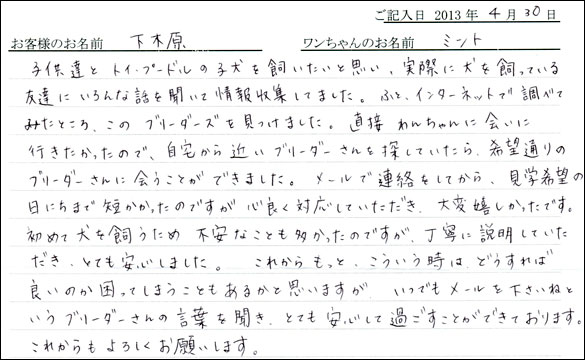 ご記入日 2013年 4月 30日
お客様のお名前 下木原 ワンちゃんのお名前 ミント
子供達とトイ・プードルの子犬を飼いたいと思い、実際に犬を飼っている
友達にいろんな話を聞いて情報収集してました。ふと、インターネットで調べて
みたところ、このブリーダーズを見つけました。直接わんちゃんに会いに
行きたかったので、自宅から近いブリーダーさんを探していたら、希望通りの
ブリーダーさんに会うことができました。メールで連絡をしてから、見学希望の
日にちまで短かかったのですが心良く対応していただき、大変嬉しかったです。
初めて犬を飼うため不安なことも多かったのですが、丁寧に説明していた
だき、とても安心しました。これからもっと、こういう時は、どうすれば
良いのか困ってしまうこともあるかと思いますが、いつでもメールを下さいねと
いうブリーダーさんの言葉を聞き、とても安心して過ごすことができております。
これからもよろしくお願いします。